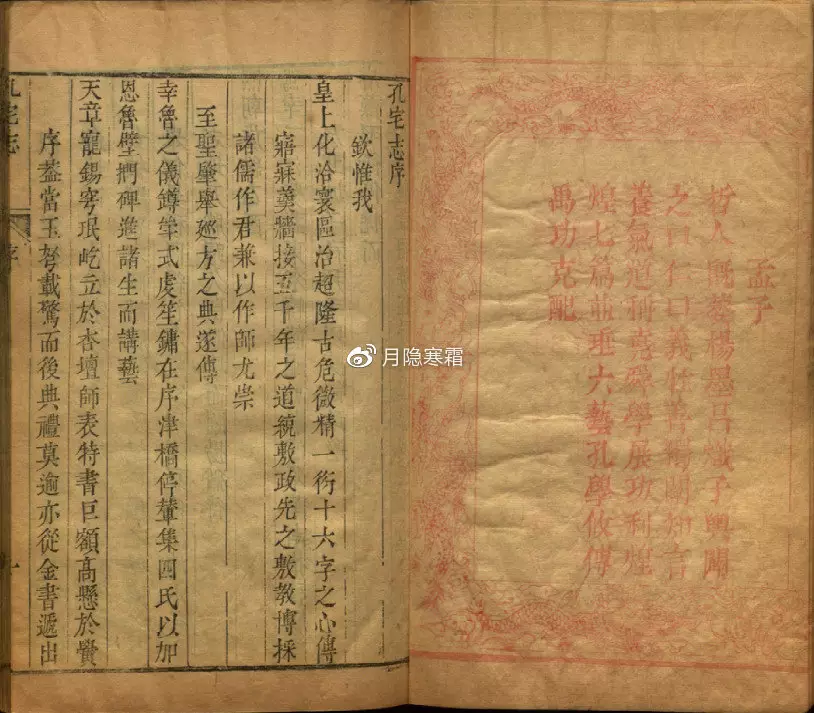 孟子
哲人既萎楊墨昌熾子輿闢
之曰仁曰義性善獨闡知言
養氣道稱堯舜學屏功利煌
煌七篇並班六藝孔學攸傳
禹功克配
孔宅志序
欽惟我
皇上化洽寰區治超隆古危微精一衍十六字之心傳
寤寐羹牆接五千年之道統敷政先之敷教博採
諸儒作君兼以作師尤崇
至聖肇舉廵方之典遂傳
幸魯之儀罇斝式虔笙鏞在序津橋停輦集四氏以加
恩魯壁捫碑進諸生而講藝
天章寵錫穹珉屹立於杏壇師表特書巨額高懸於黌
序葢當玉弩載驚而後典禮莫逾亦從金書遞出
孔宅志
序
一
月隐寒霜